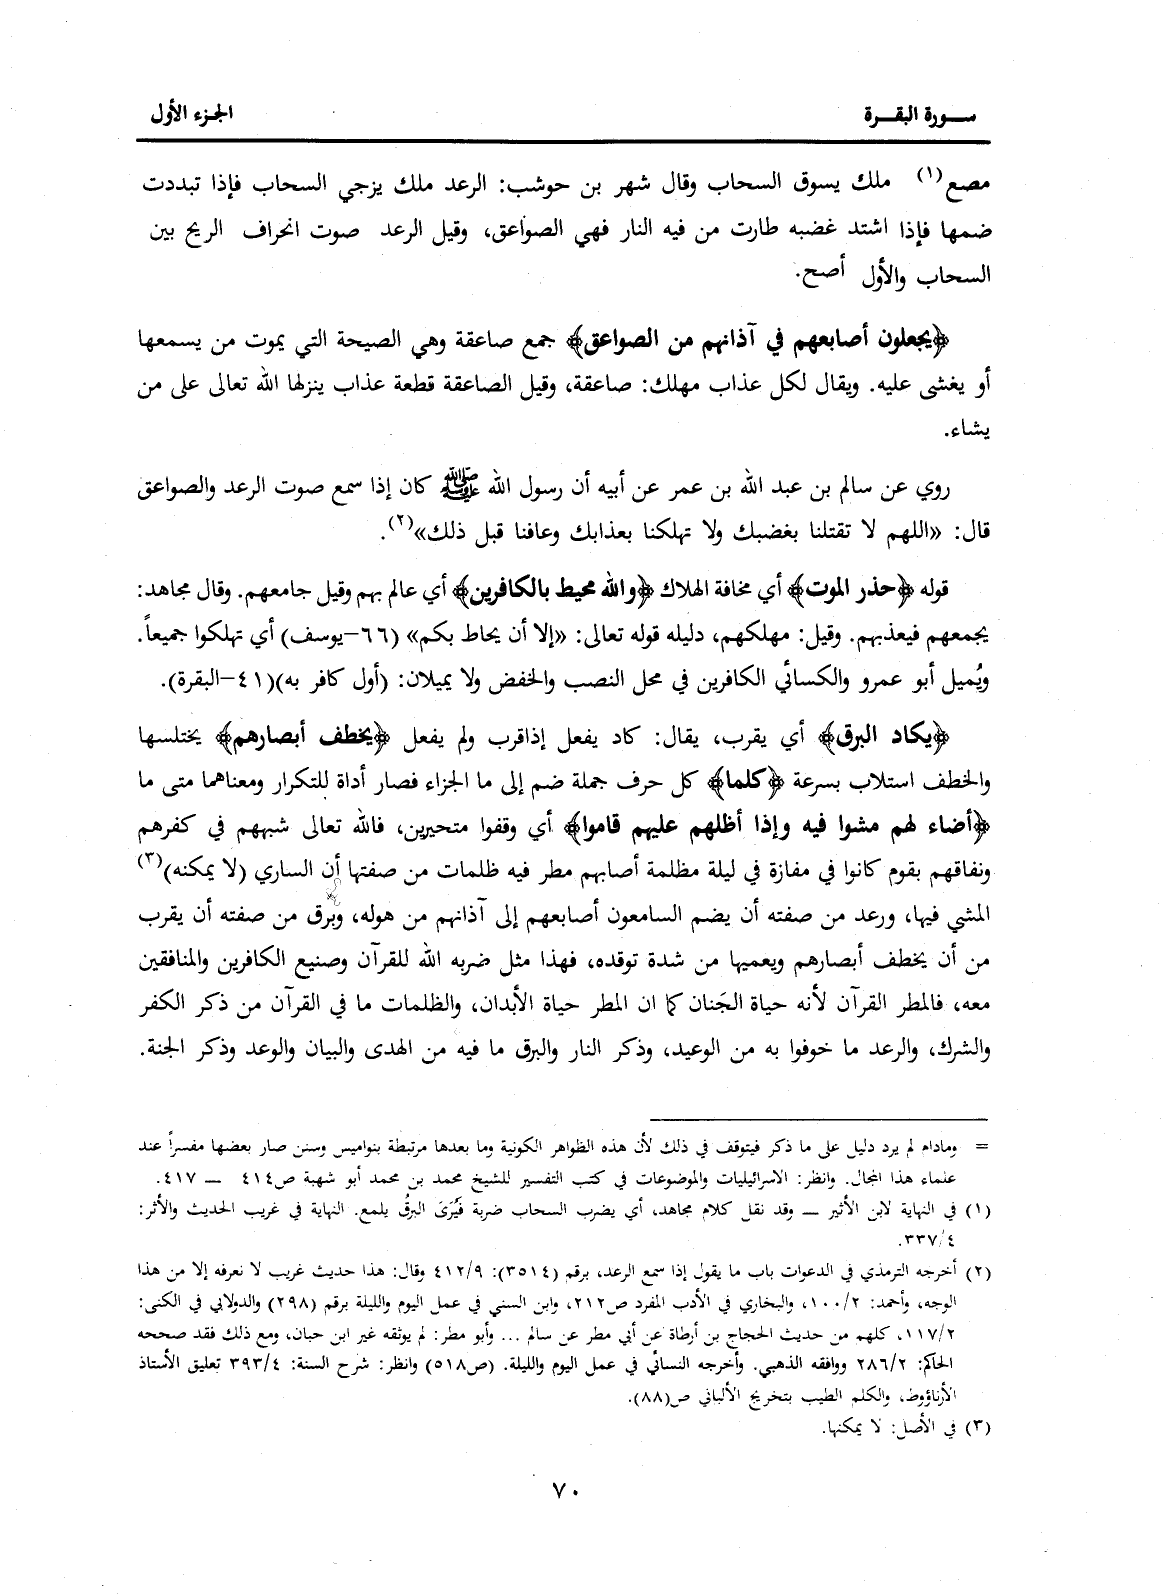 سورة البقرة
الجزء الأول
مصع(١) ملك يسوق السحاب وقال شهر بن حوشب: الرعد ملك يزجي السحاب فإذا تبددت
ضمها فإذا اشتد غضبه طارت من فيه النار فهي الصواعق، وقيل الرعد صوت انحراف الريح بين
السحاب والأول أصح.
﴿يجعلون أصابعهم في آذانهم من الصواعق﴾ جمع صاعقة وهي الصيحة التي يموت من يسمعها
أو يغشى عليه. ويقال لكل عذاب مهلك: صاعقة، وقيل الصاعقة قطعة عذاب ينزلها الله تعالى على من
يشاء.
روي عن سالم بن عبد الله بن عمر عن أبيه أن رسول الله ﷺ كان إذا سمع صوت الرعد والصواعق
قال: «اللهم لا تقتلنا بغضبك ولا تهلكنا بعذابك وعافنا قبل ذلك»(٢).
قوله ﴿حذر الموت﴾ أي مخافة الهلاك ﴿والله محيط بالكافرين﴾ أي عالم بهم وقيل جامعهم. وقال مجاهد:
يجمعهم فيعذبهم. وقيل: مهلكهم، دليله قوله تعالى: «إلا أن يحاط بكم» (٦٦-يوسف) أي تهلكوا جميعاً.
ويُميل أبو عمرو والكسائي الكافرين في محل النصب والخفض ولا يميلان: (أول كافر به)(٤١-البقرة).
﴿يكاد البرق﴾ أي يقرب، يقال: كاد يفعل إذاقرب ولم يفعل ﴿يخطف أبصارهم﴾ يختلسها
والخطف استلاب بسرعة ﴿كلما﴾ كل حرف جملة ضم إلى ما الجزاء فصار أداة للتكرار ومعناهما متى ما
﴿أضاء لهم مشوا فيه وإذا أظلهم عليهم قاموا﴾ أي وقفوا متحيرين، فالله تعالى شبههم في كفرهم
ونفاقهم بقوم كانوا في مفازة في ليلة مظلمة أصابهم مطر فيه ظلمات من صفتها أن الساري (لا يمكنه)(٣)
المشي فيها، ورعد من صفته أن يضم السامعون أصابعهم إلى آذانهم من هوله، وبرق من صفته أن يقرب
من أن يخطف أبصارهم ويعميها من شدة توقده، فهذا مثل ضربه الله للقرآن وصنيع الكافرين والمنافقين
معه، فالمطر القرآن لأنه حياة الجَنان كما ان المطر حياة الأبدان، والظلمات ما في القرآن من ذكر الكفر
والشرك، والرعد ما خوفوا به من الوعيد، وذكر النار والبرق ما فيه من الهدى والبيان والوعد وذكر الجنة.
= ومادام لم يرد دليل على ما ذكر فيتوقف في ذلك لأن هذه الظواهر الكونية وما بعدها مرتبطة بنواميس وسنن صار بعضها مفسراً عند
علماء هذا المجال. وانظر: الاسرائيليات والموضوعات في كتب التفسير للشيخ محمد بن محمد أبو شهبة ص٤١٤ — ٤١٧.
(١) في النهاية لابن الأثير — وقد نقل كلام مجاهد، أي يضرب السحاب ضربة فَيُرَى البرقُ يلمع. النهاية في غريب الحديث والأثر:
٣٣٧/٤.
(٢) أخرجه الترمذي في الدعوات باب ما يقول إذا سمع الرعد، برقم (٣٥١٤): ٤١٢/٩ وقال: هذا حديث غريب لا نعرفه إلا من هذا
الوجه، وأحمد: ١٠٠/٢، والبخاري في الأدب المفرد ص٢١٢، وابن السني في عمل اليوم والليلة برقم (٢٩٨) والدولابي في الكنى:
١١٧/٢، كلهم من حديث الحجاج بن أرطاة عن أبي مطر عن سالم ... وأبو مطر: لم يوثقه غير ابن حبان، ومع ذلك فقد صححه
الحاكم: ٢٨٦/٢ ووافقه الذهبي. وأخرجه النسائي في عمل اليوم والليلة. (ص٥١٨) وانظر: شرح السنة: ٣٩٣/٤ تعليق الأستاذ
الأرناؤوط، والكلم الطيب بتخريج الألباني ص(٨٨).
(٣) في الأصل: لا يمكنها.
٧٠